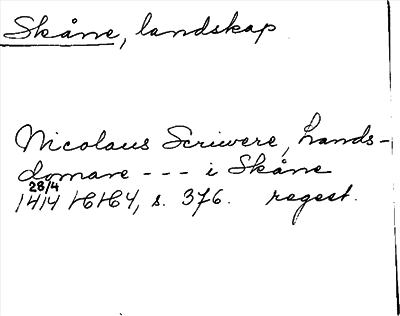 Skåne, landskap
Nicolaus Scrivere, hands-
domare - - - i Skåne
28/4
1414 HH4, s. 376. regest.